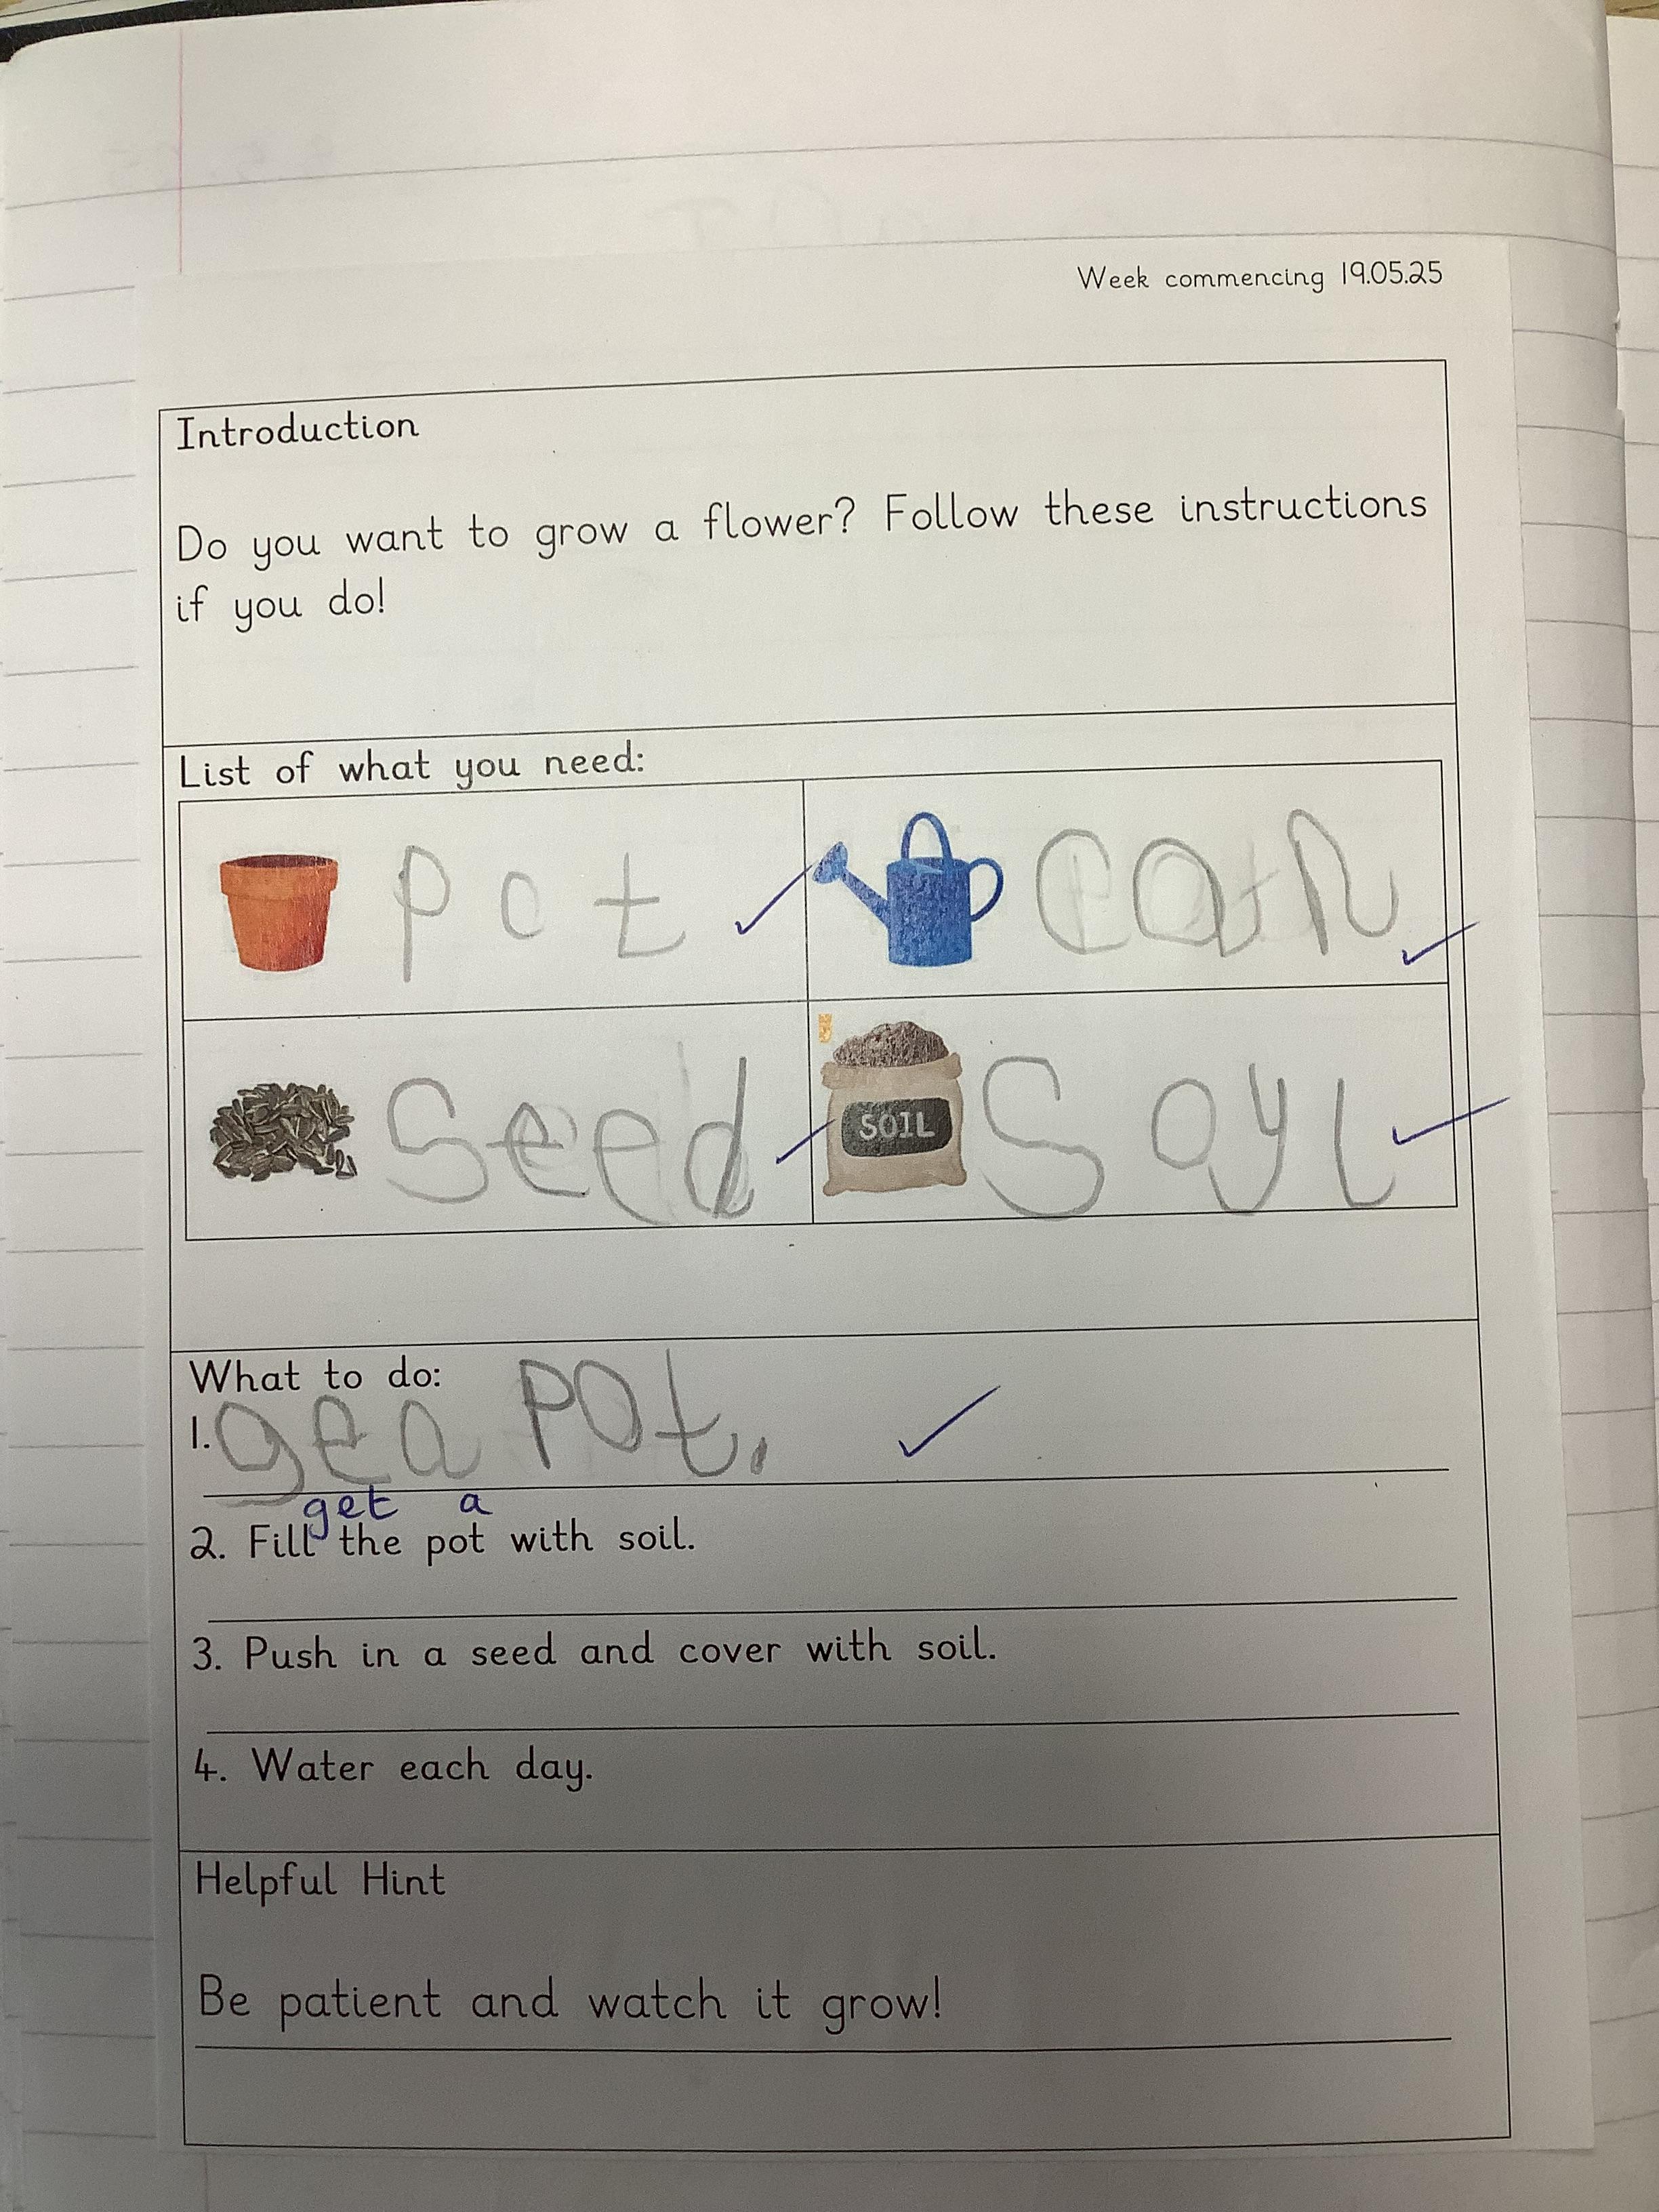 Week commencing 19.05.25
Introduction
Do you want to grow a flower? Follow these instructions
if you do!
List of what you need:
pot
can
seed
SOIL
soyl
What to do:
1. ge a pot.
get a
2. Fill the pot with soil.
3. Push in a seed and cover with soil.
4. Water each day.
Helpful Hint
Be patient and watch it grow!